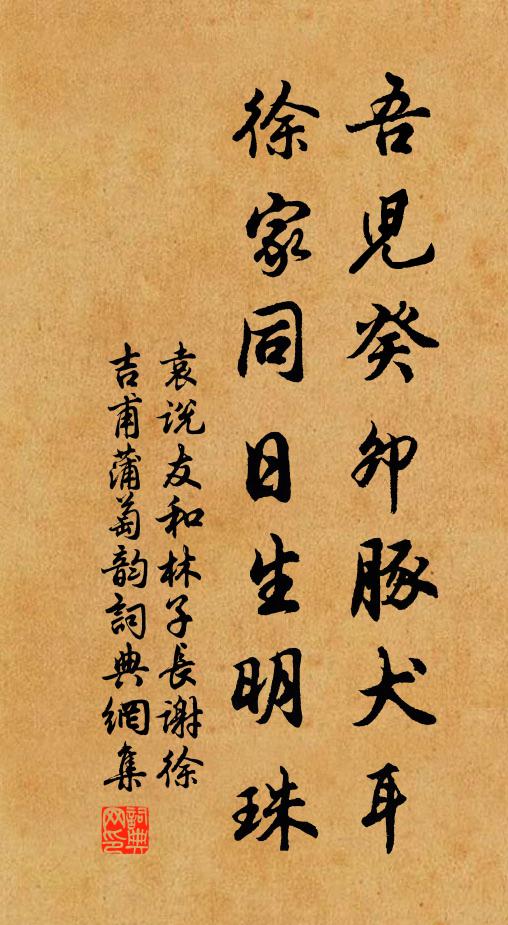 吾児癸卯豚犬耳
徐家同日生明珠
袁说友和林子長謝徐
吉甫蒲萄韵詞典網集
詞典网印